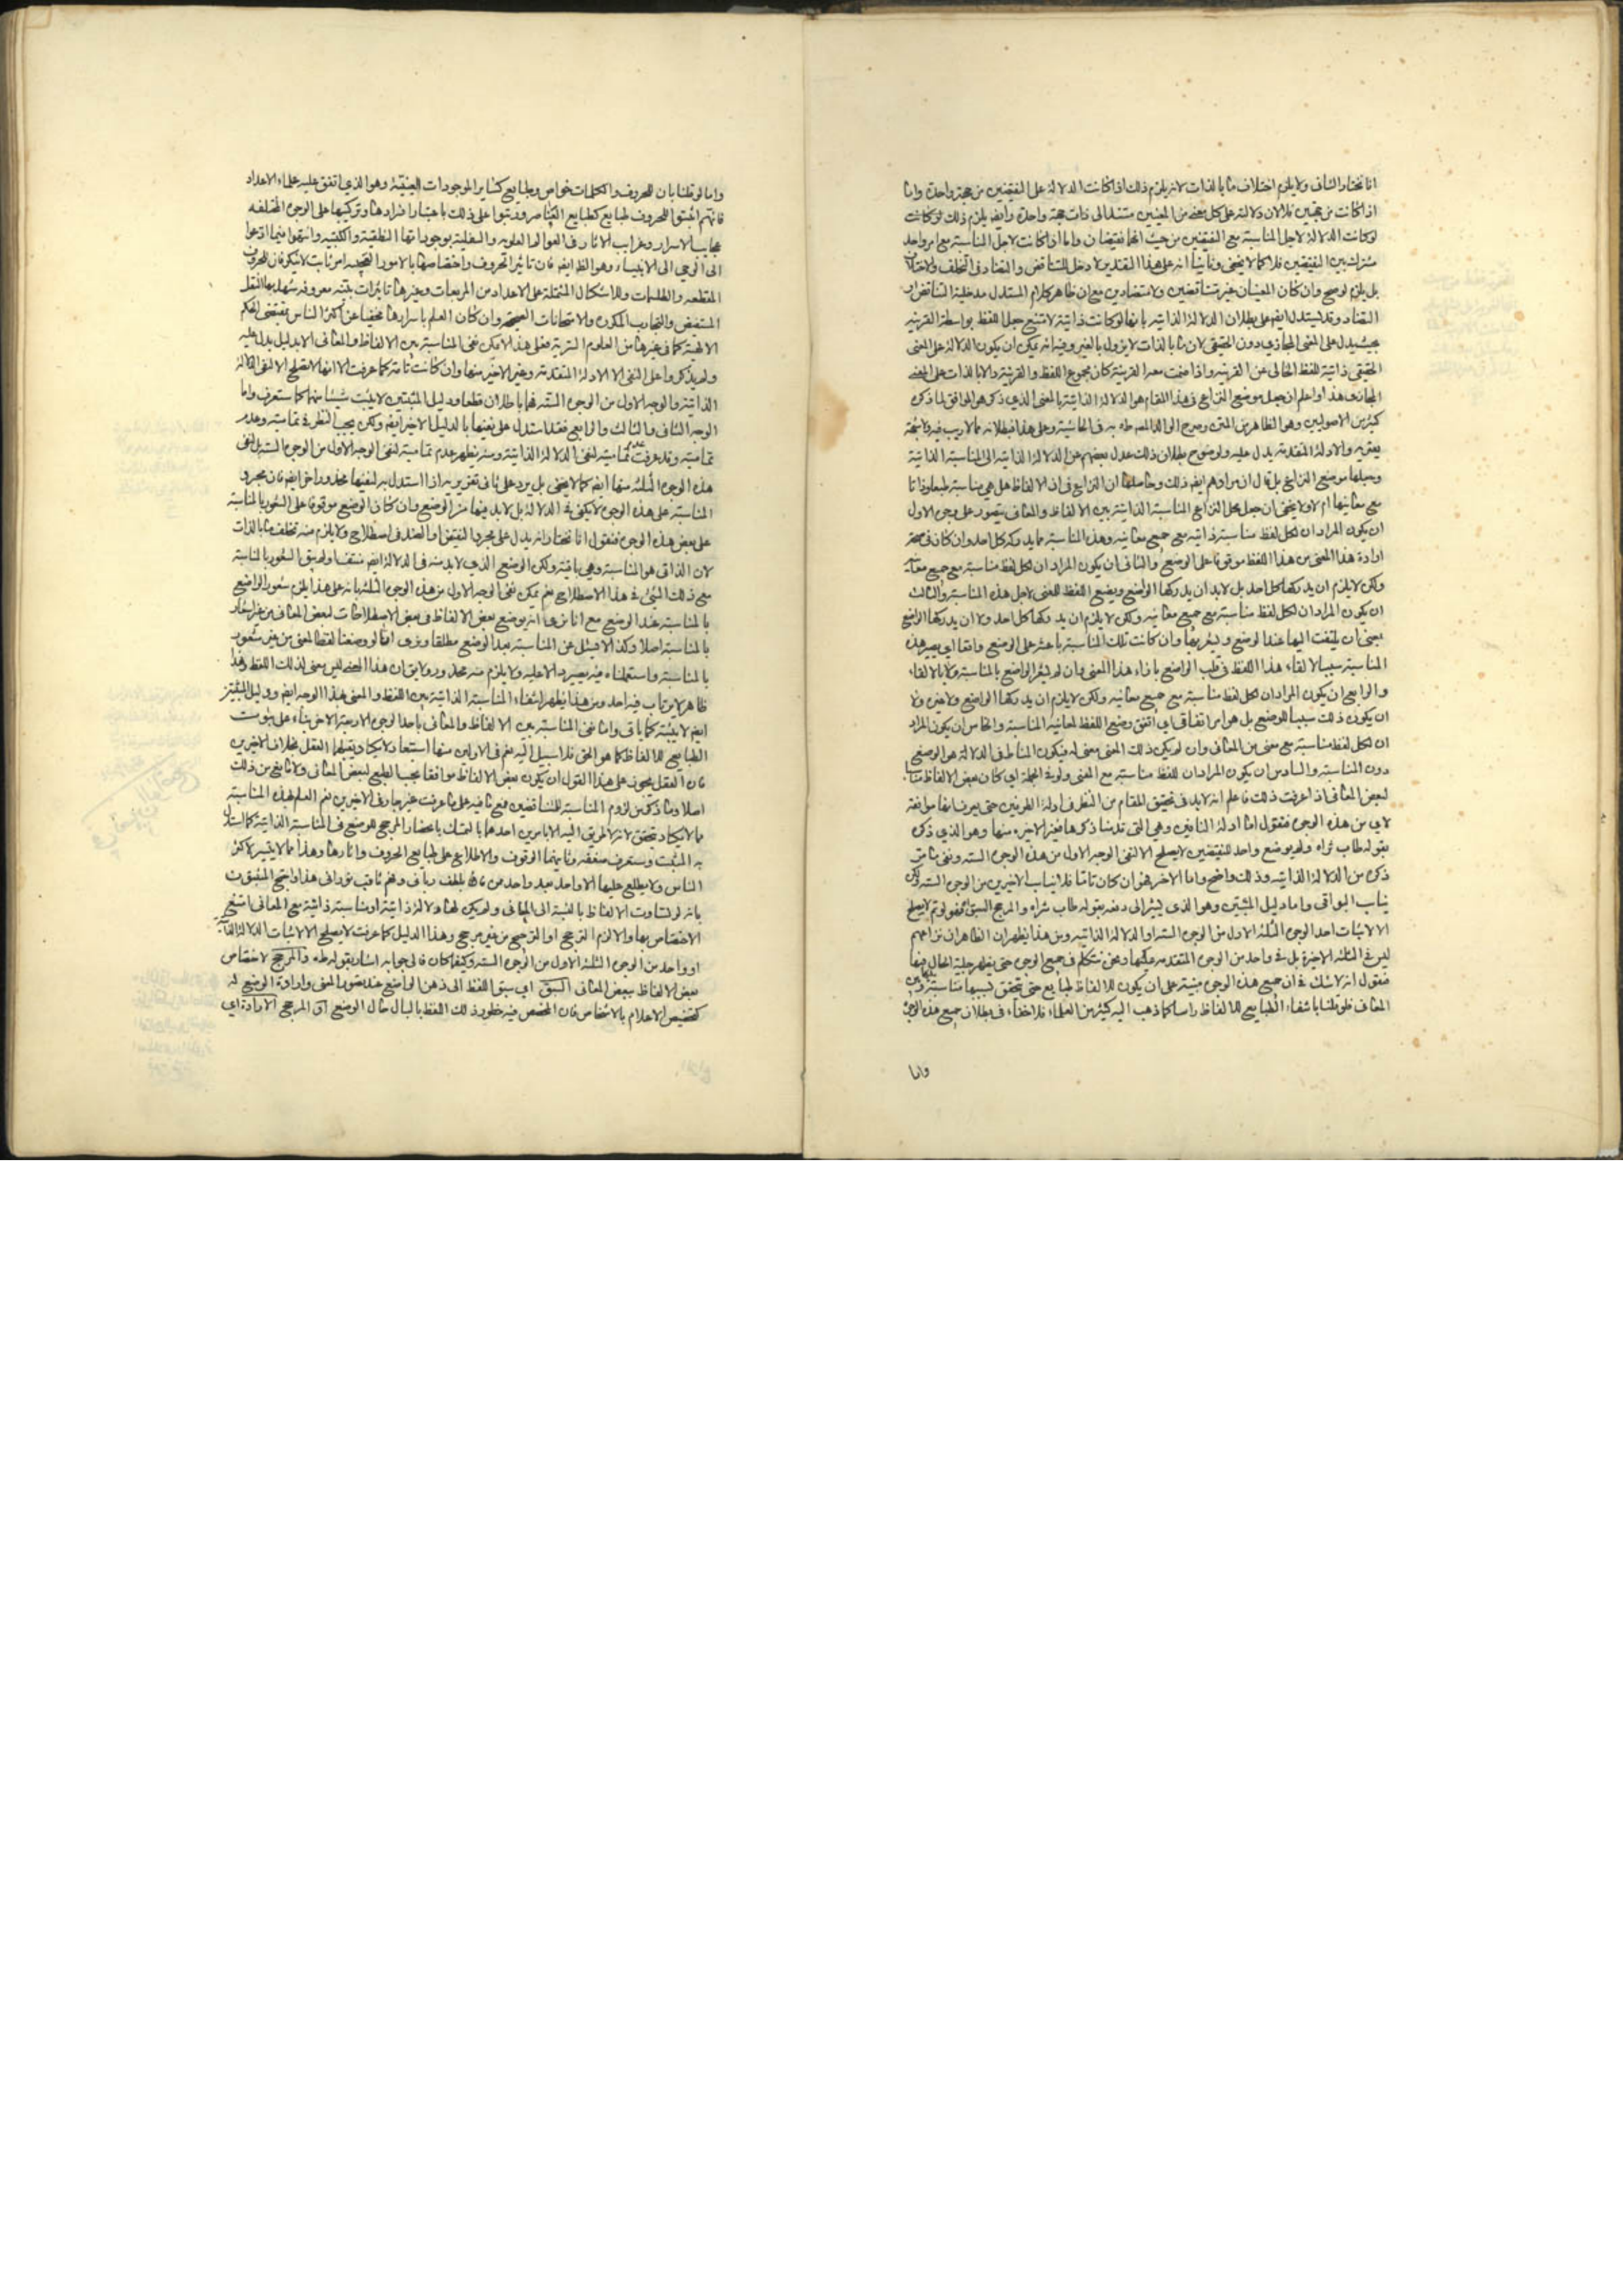 انا نختار الثاني ولا يلزم اختلاف ما بالذات لانه يلزم ذلك اذا كانت الدلالة على النقيضين من جهة واحدة واما
اذا كانت من جهتين فلا لان دلالته على كل منهما من المعنيين مستند الى ذات جهة واحدة وايض يلزم ذلك لو كانت
لو كانت الدلالة لاجل المناسبة مع النقيضين من حيث انهما نقيضان واما اذا كانت لاجل المناسبة مع امر واحد
مشترك بين النقيضين فلا كما لا يخفى وثانيا انه على هذا التقدير لا دخل للتناقض والتضاد في التخلف والاختلاف
بل يلزم لو صح وان كان المعنيان غير متناقضين ولا متضادين مع ان ظاهر كلام المستدل مدخلية التناقض او
التضاد وقد يستدل ايض على بطلان الدلالة الذاتية بانها لو كانت ذاتية لامتنع جعل اللفظ بواسطة القرينة
بحيث يدل على المعنى المجازي دون الحقيقي لان ما بالذات لا يزول بالغير وفيه انه يمكن ان يكون الدلالة على المعنى
الحقيقي ذاتية للفظ الخالي عن القرينة واذا ضمت معه القرينة كان مجموع اللفظ والقرينة دالا بالذات على المعنى
المجازي هذا واعلم ان جعل موضع النزاع في هذا المقام هو الدلالة الذاتية بالمعنى الذي ذكر هو الموافق لما ذكره
كثير من الاصوليين وهو الظاهر من المتن وصرح الوالد المصنف طاب ثراه به في الحاشية وعلى هذا فبطلانه مما لا ريب فيه
يعتريه والادلة المتقدمة يدل عليه ولوضوح بطلان ذلك عدل بعضهم عن الدلالة الذاتية الى المناسبة الذاتية
وجعلها موضع النزاع بل قال ان مرادهم ايض ذلك وحاصله ان النزاع في ان الالفاظ هل هي مناسبة طبعا وذاتا
مع معانيها ام لا ولا يخفى ان جعل محل النزاع المناسبة الذاتية بين الالفاظ والمعاني يتصور على وجوه الاول
ان يكون المراد ان لكل لفظ مناسبة ذاتية مع جميع معانيه وهذه المناسبة مما يدركه كل احد وان كان في صحة
ارادة هذا المعنى من هذا اللفظ موقوفا على الوضع والثاني ان يكون المراد ان لكل لفظ مناسبة مع جميع معانيه
ولكن لا يلزم ان يدركها كل احد بل لابد ان يدركها الواضع ويضع اللفظ للمعنى لاجل هذه المناسبة والثالث
ان يكون المراد ان لكل لفظ مناسبة مع جميع معانيه ولكن لا يلزم ان يدركها كل احد ولا ان يدركها الواضع
بمعنى ان يلتفت اليها عند الوضع ويشعر بها وان كانت تلك المناسبة باعثة على الوضع واقعا اي يصير هذه
المناسبة سببا لالقاء هذا اللفظ في قلب الواضع بازاء هذا المعنى وان لم يشعر الواضع بالمناسبة ولا بالالقاء
والرابع ان يكون المراد ان لكل لفظ مناسبة مع جميع معانيه ولكن لا يلزم ان يدركها الواضع ولا غيره ولا
ان يكون ذلك سببا للوضع بل هو امر اتفاقي اي اتفق وضع اللفظ لمعانيه المناسبة والخامس ان يكون المراد
ان لكل لفظ مناسبة مع معنى من المعاني وان لم يكن ذلك المعنى معنى له فيكون المناط في الدلالة هو الوضع
دون المناسبة والسادس ان يكون المراد ان للفظ مناسبة مع المعنى ولو في الجملة اي كان بعض الالفاظ مناسبا
لبعض المعاني اذا عرفت ذلك فاعلم انه لابد في تحقيق المقام من النظر في ادلة الطرفين حتى يعرف انها موافقة
لاي من هذه الوجوه فنقول اما ادلة النافين وهي التي قدمنا ذكرها فغير الاخيرة منها وهو الذي ذكره
بقوله طاب ثراه ولم يوضع واحد للنقيضين لا يصلح الا لنفي الوجه الاول من هذه الوجوه الستة ونفي ما مر
ذكره من الدلالة الذاتية وذلك واضح واما الاخر فهو ان كان تاما فلا يناسب الاخيرين من الوجوه الستة
يناسب البواقي واما دليل المثبتين وهو الذي يشير الى دفعه بقوله طاب ثراه والمرجح السبق فهو لو تم لا يصلح
الا لاثبات احد الوجوه الثلثة الاول من الوجوه الستة او الدلالة الذاتية ومن هذا يظهر ان الظاهر ان نزاعهم
ليس في الثلثة الاخيرة بل في واحد من الوجوه المتقدمة عليها ونحن نتكلم في جميع الوجوه حتى يظهر جلية الحال فيها
فنقول انه لا شك في ان جميع هذه الوجوه مبتنية على ان يكون للالفاظ طبايع حتى تتحقق بسببها مناسبة بين
المعاني فلو قلنا بانتفاء الطبايع للالفاظ راسا كما ذهب اليه كثير من العلماء فلا خفاء في بطلان جميع هذه الوجوه
واما
واما لو قلنا بان للحروف والكلمات خواص وطبايع كساير الموجودات العينية وهو الذي اتفق عليه علماء الاعداد
فانهم اثبتوا للحروف طبايع كطبايع العناصر ورتبوا على ذلك باعتبار افرادها وتركيبها على الوجوه المختلفة
عجايب الاسرار وغرايب الآثار في العوالم العلوية والسفلية بوجوداتها اللفظية والكتبية وانتهوا فيما ادعوا
الى الوحي الى الانبياء وهو الظ ايض فان تاثير الحروف واختصاصها بالامور العجيبة امر ثابت لا ينكر فان للحروف
المقطعة والطلسمات وللاشكال المشتملة على الاعداد من المربعات وغيرها تاثيرات بينة معروفة شهد بها النقل
المستفيض والتجارب المكررة والامتحانات الصحيحة وان كان العلم باسرارها مخفيا عن اكثر الناس بمقتضى الحكم
الالهية كما في غيرها من العلوم السرية فعلى هذا لا يمكن نفي المناسبة بين الالفاظ والمعاني الا بدليل يدل عليه
ولم يذكروا على النفي الا الادلة المتقدمة وغير الاخير منها وان كانت تامة كما عرفت الا انها لا تصلح الا لنفي الدلالة
الذاتية والوجه الاول من الوجوه الستة فهما باطلان قطعا ودليل المثبتين لا يثبت شيئا منهما كما ستعرف واما
الوجه الثاني والثالث والرابع فقد استدل على نفيها بالدليل الاخير ايض ولكن يجب النظر في تماميته وعدم
تماميته وقد عرفت عدم تماميته لنفي الدلالة الذاتية ومنه يظهر عدم تماميته لنفي الوجه الاول من الوجوه الستة بل لنفي
هذه الوجوه الثلثة منها ايض كما لا يخفى بل يرد على ثاني تقريريه اذا استدل به لنفيها محذور اخر ايض فان مجرد
المناسبة على هذه الوجوه لا يكفي في الدلالة بل لابد فيها من الوضع وان كان الوضع موقوفا على الشعور بالمناسبة
على بعض هذه الوجوه فنقول انا نختار انه يدل على مجرد النقيض او الضد في اصطلاح ولا يلزم منه تخلف ما بالذات
لان الذاتي هو المناسبة وهي باقية ولكن الوضع الذي لابد منه في الدلالة ايض منتف او لم يبق الشعور بالمناسبة
مع ذلك الشيء في هذا الاصطلاح نعم يمكن نفي الوجه الاول من هذه الوجوه الثلثة بانه على هذا يلزم شعور الواضع
بالمناسبة عند الوضع مع انا نرى انه يوضع بعض الالفاظ في بعض الاصطلاحات لبعض المعاني من غير اشعار
بالمناسبة اصلا وكذا لا يسئل عن المناسبة بعد الوضع مطلقا ونرى انا لو وضعنا لفظا لمعنى من غير شعور
بالمناسبة واستعملناه فيه يصير دالا عليه ولا يلزم منه محذور ولا يق ان هذا المعنى ليس معنى لذلك اللفظ وهذا
ظاهر لا يرتاب فيه احد ومن هذا يظهر انتفاء المناسبة الذاتية بين اللفظ والمعنى بهذا الوجه ايض ودليل المثبتين
ايض لا يثبته كما ياتي واما نفي المناسبة بين الالفاظ والمعاني باحد الوجوه الاربعة الاخر بناء على ثبوت
الطبايع للالفاظ كما هو الحق فلا سبيل اليه نعم في الاولين منها استبعاد لا يكاد يقبلهما العقل بخلاف الاخيرين
فان العقل يجوز على هذا القول ان يكون بعض الالفاظ موافقا بحسب الطبع لبعض المعاني ولا مانع من ذلك
اصلا وما ذكر من لزوم المناسبة للمتناقضين فمع ما فيه على ما عرفت غير جار في الاخيرين نعم العلم بهذه المناسبة
مما لا يكاد يتحقق لانه لا طريق اليه الا بامرين احدهما بالتمسك بانحصار المرجح للوضع في المناسبة الذاتية كما استدل
به المثبت وستعرف ضعفه وثانيهما الوقوف والاطلاع على طبايع الحروف واثارها وهذا مما لا يتيسر لاكثر
الناس ولا يطلع عليها الا واحد بعد واحد من فاز بلطف رباني وفهم ثاقب نوراني هذا واحتج المثبتون
بانه لو تساوت الالفاظ بالنسبة الى المعاني ولم يكن لها دلالة ذاتية او مناسبة ذاتية مع المعاني امتنع
الاختصاص بها والا لزم الترجح او الترجيح من غير مرجح وهذا الدليل كما عرفت لا يصلح الا لاثبات الدلالة الذاتية
او واحد من الوجوه الثلثة الاول من الوجوه الستة وكيف كان فالى جوابه اشار بقوله طه والمرجح لاختصاص
بعض الالفاظ ببعض المعاني السبق اي سبق اللفظ الى ذهن الواضع عند تصور المعنى وارادة الوضع له
كتخصيص الاعلام بالاشخاص فان المخصص فيه خطور ذلك اللفظ بالبال حال الوضع او المرجح الارادة اي